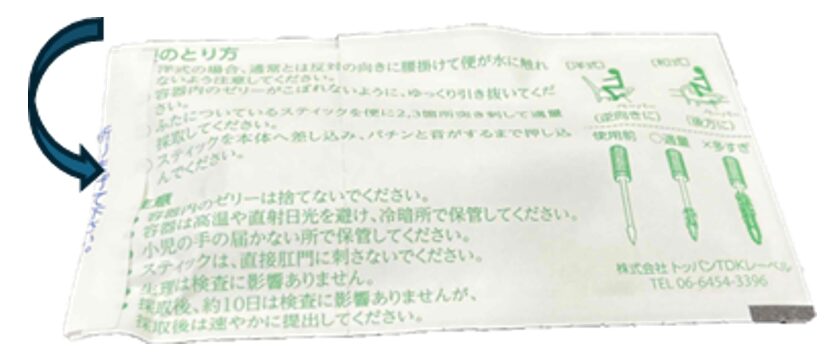 のとり方
洋式の場合、通常とは反対の向きに腰掛けて便が水に触れ
ないよう注意してください。
容器内のゼリーがこぼれないように、ゆっくり引き抜いてくだ
さい。
ふたについているスティックを便に2,3箇所突き刺して適量
採取してください。
スティックを本体へ差し込み、パチンと音がするまで押し込
んでください。
注意
・容器内のゼリーは捨てないでください。
・容器は高温や直射日光を避け、冷暗所で保管してください。
・小児の手の届かない所で保管してください。
・スティックは、直接肛門に刺さないでください。
・生理は検査に影響ありません。
・採取後、約10日は検査に影響ありませんが、
採取後は速やかに提出してください。
(洋式)
ペーパー
(逆向きに)
(和式)
ペーパー
(後方に)
使用前 ○適量 ×多すぎ
株式会社 トッパンTDKレーベル
TEL 06-6454-3396